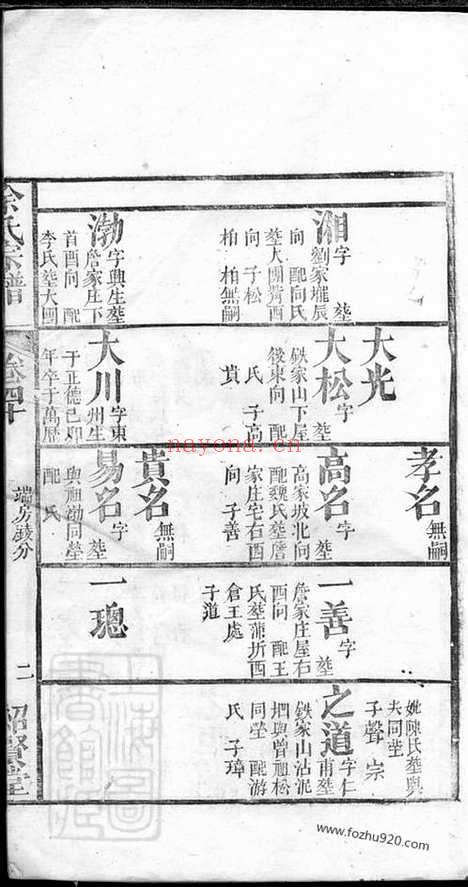 妣陳氏塋與
夫同塋
子聲宗
孝名 無嗣
大光
湘 字 塋
劉家壠辰
向 配向氏
塋大團背酉
向 子松
柏 柏無嗣
大松 字 塋
鉄家山下屋
後東向 配
氏 子高
貴
高名 字 塋
高家坡北向
配魏氏塋詹
家庄宅右酉
向 子善
一善 字 塋
詹家庄屋右
酉向 配王
氏塋蒲圻西
倉王處
子道
之道 字仁甫塋
鉄家山沾泥
垻與曾祖松
同塋 配游
氏 子璋
渤 字興生塋
詹家庄下
首酉向 配
李氏塋大團
大川 字東州生
于正德己卯
年卒于萬曆
貴名 無嗣
易名 字 塋
與祖渤同塋
配 氏
一璁
余氏宗譜 卷四十 端房政分 二 紹賢堂
上海圖書館藏
nayona.cn
www.fozhu920.com